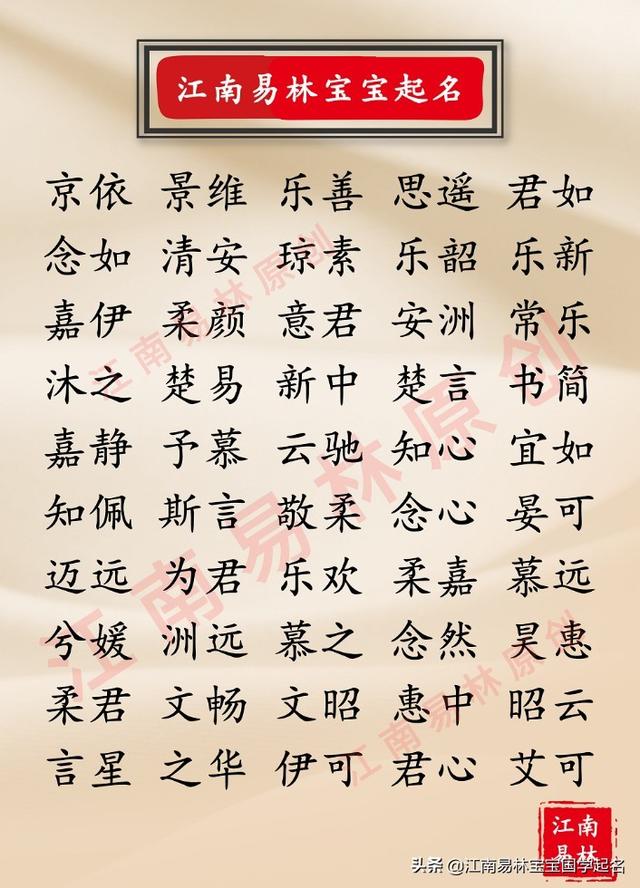 江南易林宝宝起名
京依 景维 乐善 思遥 君如
念如 清安 琼素 乐韶 乐新
嘉伊 柔颜 意君 安洲 常乐
沐之 楚易 新中 楚言 书简
嘉静 予慕 云驰 知心 宜如
知佩 斯言 敬柔 念心 晏可
迈远 为君 乐欢 柔嘉 慕远
兮媛 洲远 慕之 念然 昊惠
柔君 文畅 文昭 惠中 昭云
言星 之华 伊可 君心 艾可
江南易林原创
江南易林原创
江南易林原创
江南
易林
头条 @江南易林宝宝国学起名